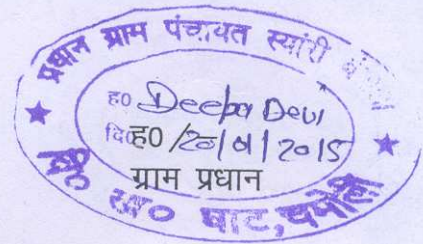 प्रधान ग्राम पंचायत स्यांरी
ह० Deepa Devi
दि० ह० /20/01/2015
ग्राम प्रधान
वि० ख० घाट, चमोली